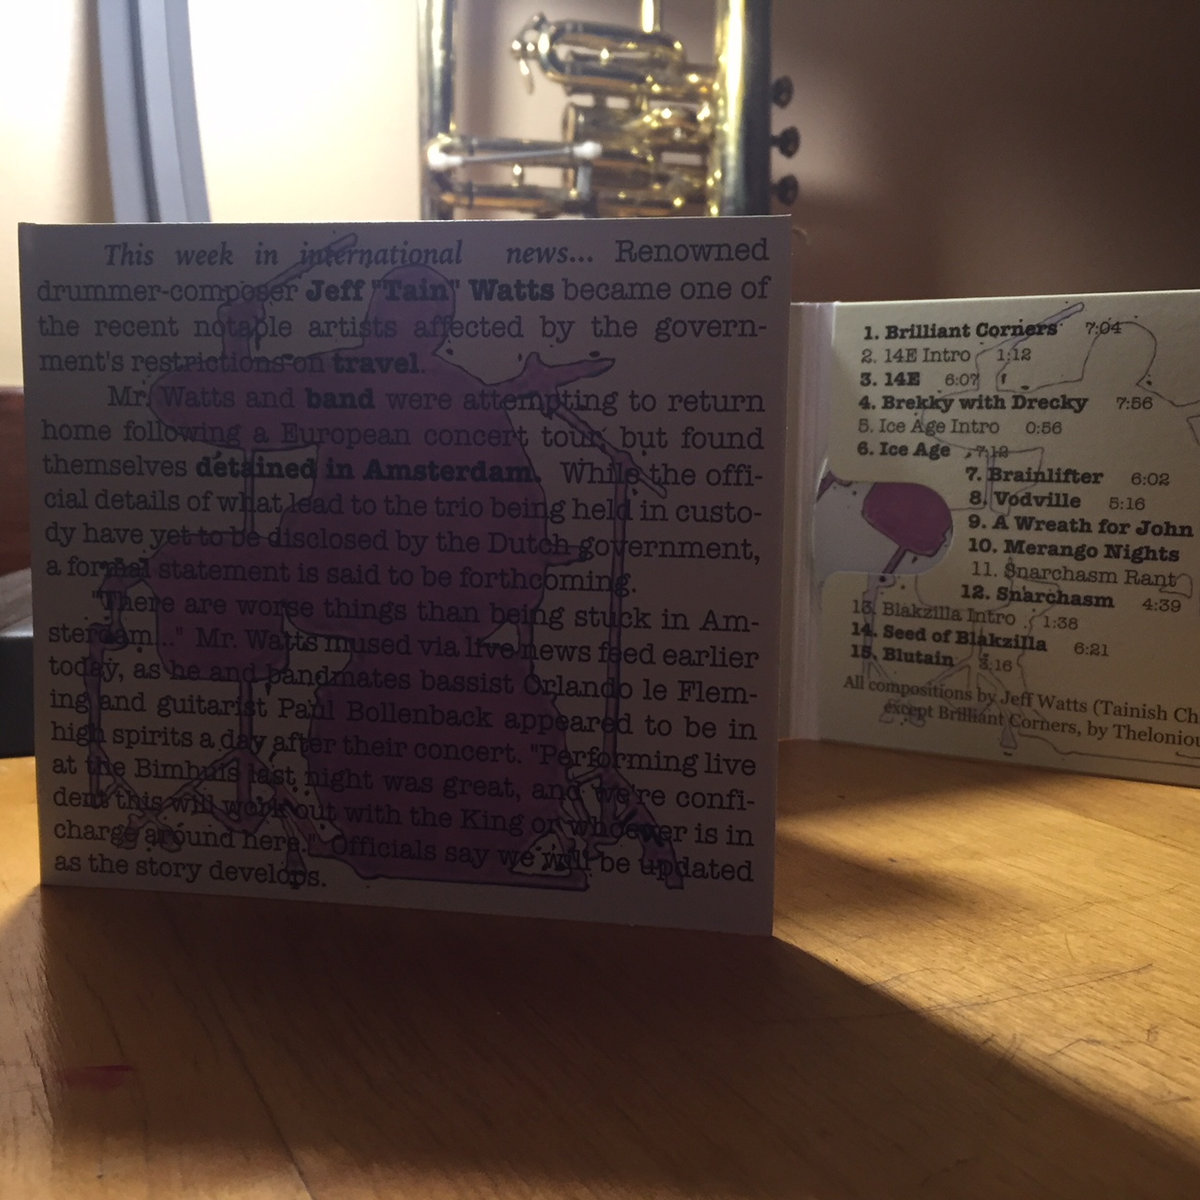 This week in international news... Renowned
drummer-composer Jeff "Tain" Watts became one of
the recent notable artists affected by the govern-
ment's restrictions on travel.
Mr. Watts and band were attempting to return
home following a European concert tour, but found
themselves detained in Amsterdam. While the offi-
cial details of what lead to the trio being held in custo-
dy have yet to be disclosed by the Dutch government,
a formal statement is said to be forthcoming.
"There are worse things than being stuck in Am-
sterdam..." Mr. Watts mused via live news feed earlier
today, as he and bandmates bassist Orlando le Flem-
ing and guitarist Paul Bollenback appeared to be in
high spirits a day after their concert. "Performing live
at the Bimhuis last night was great, and we're confi-
dent this will work out with the King or whoever is in
charge around here." Officials say we will be updated
as the story develops.
1. Brilliant Corners 7:04
2. 14E Intro 1:12
3. 14E 6:07
4. Brekky with Drecky 7:56
5. Ice Age Intro 0:56
6. Ice Age 7:12
7. Brainlifter 6:02
8. Vodville 5:16
9. A Wreath for John
10. Merango Nights
11. Snarchasm Rant
12. Snarchasm 4:39
13. Blakzilla Intro 1:38
14. Seed of Blakzilla 6:21
15. Blutain 3:16
All compositions by Jeff Watts (Tainish Ch
except Brilliant Corners, by Theloniou